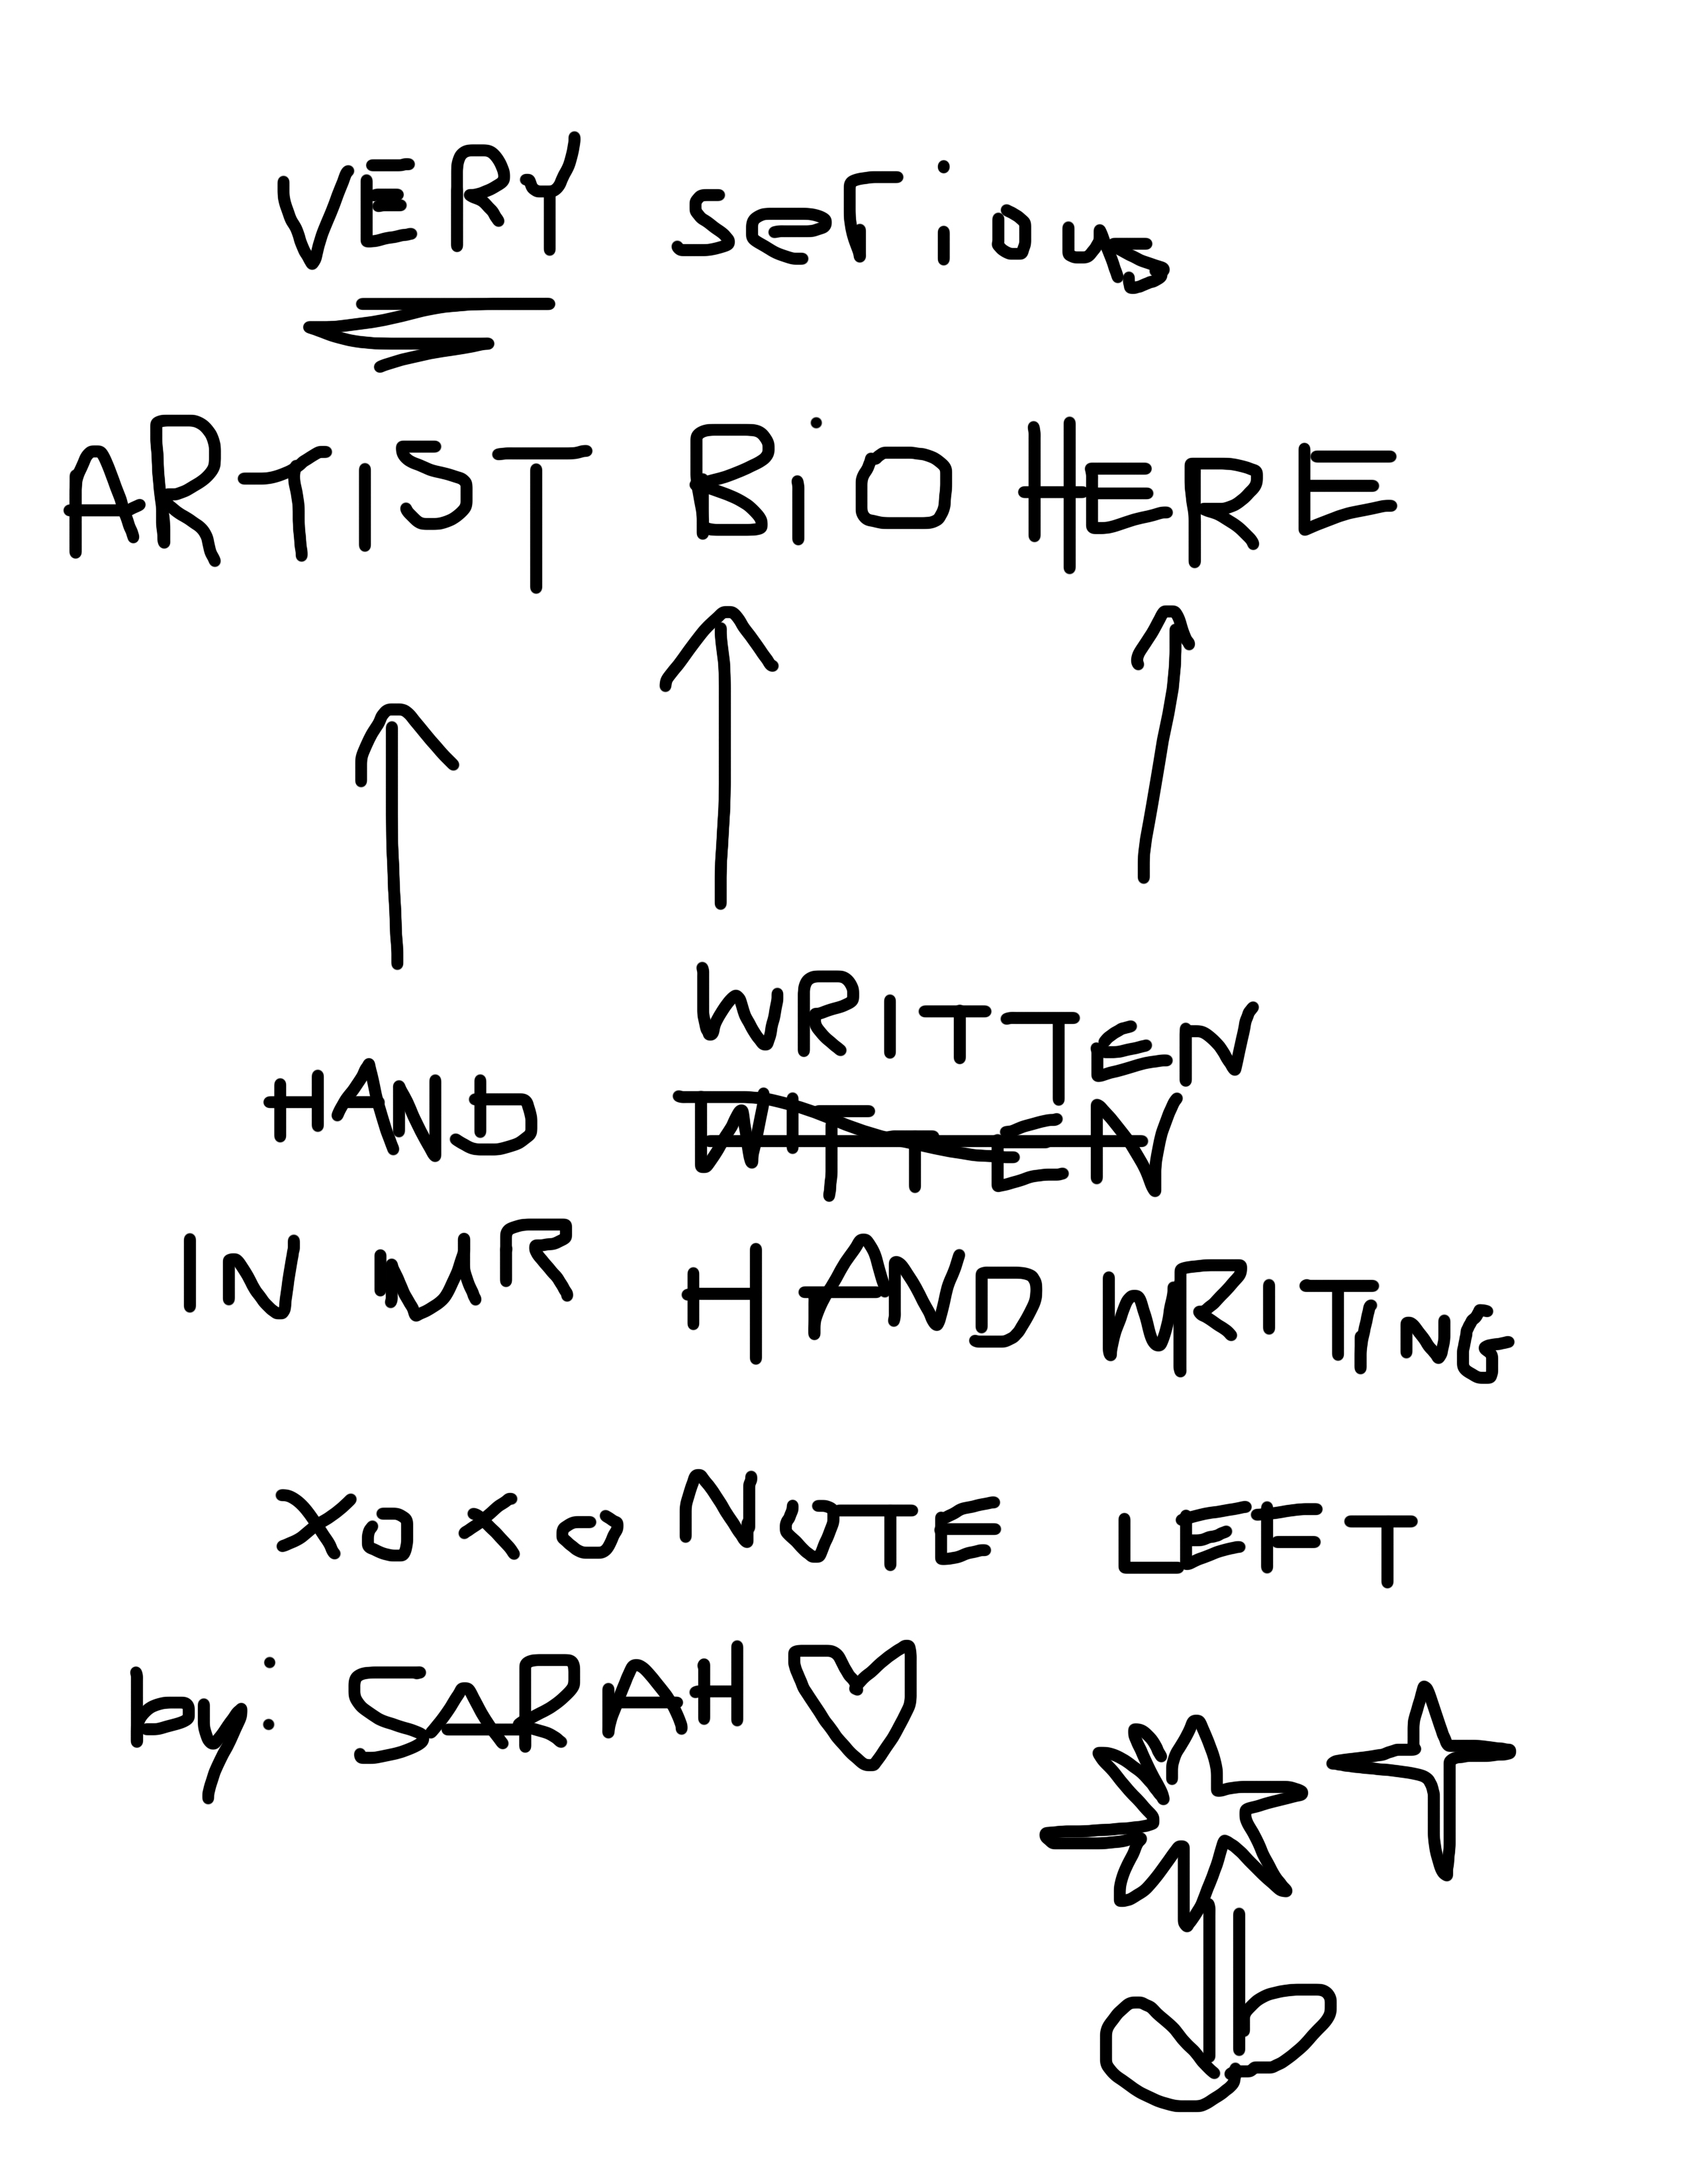 VERY serious
ARTIST BiO HERE
HAND WRITTEN
IN MR HANDWRITING
xoxo NOTE LEFT
by: SARAH